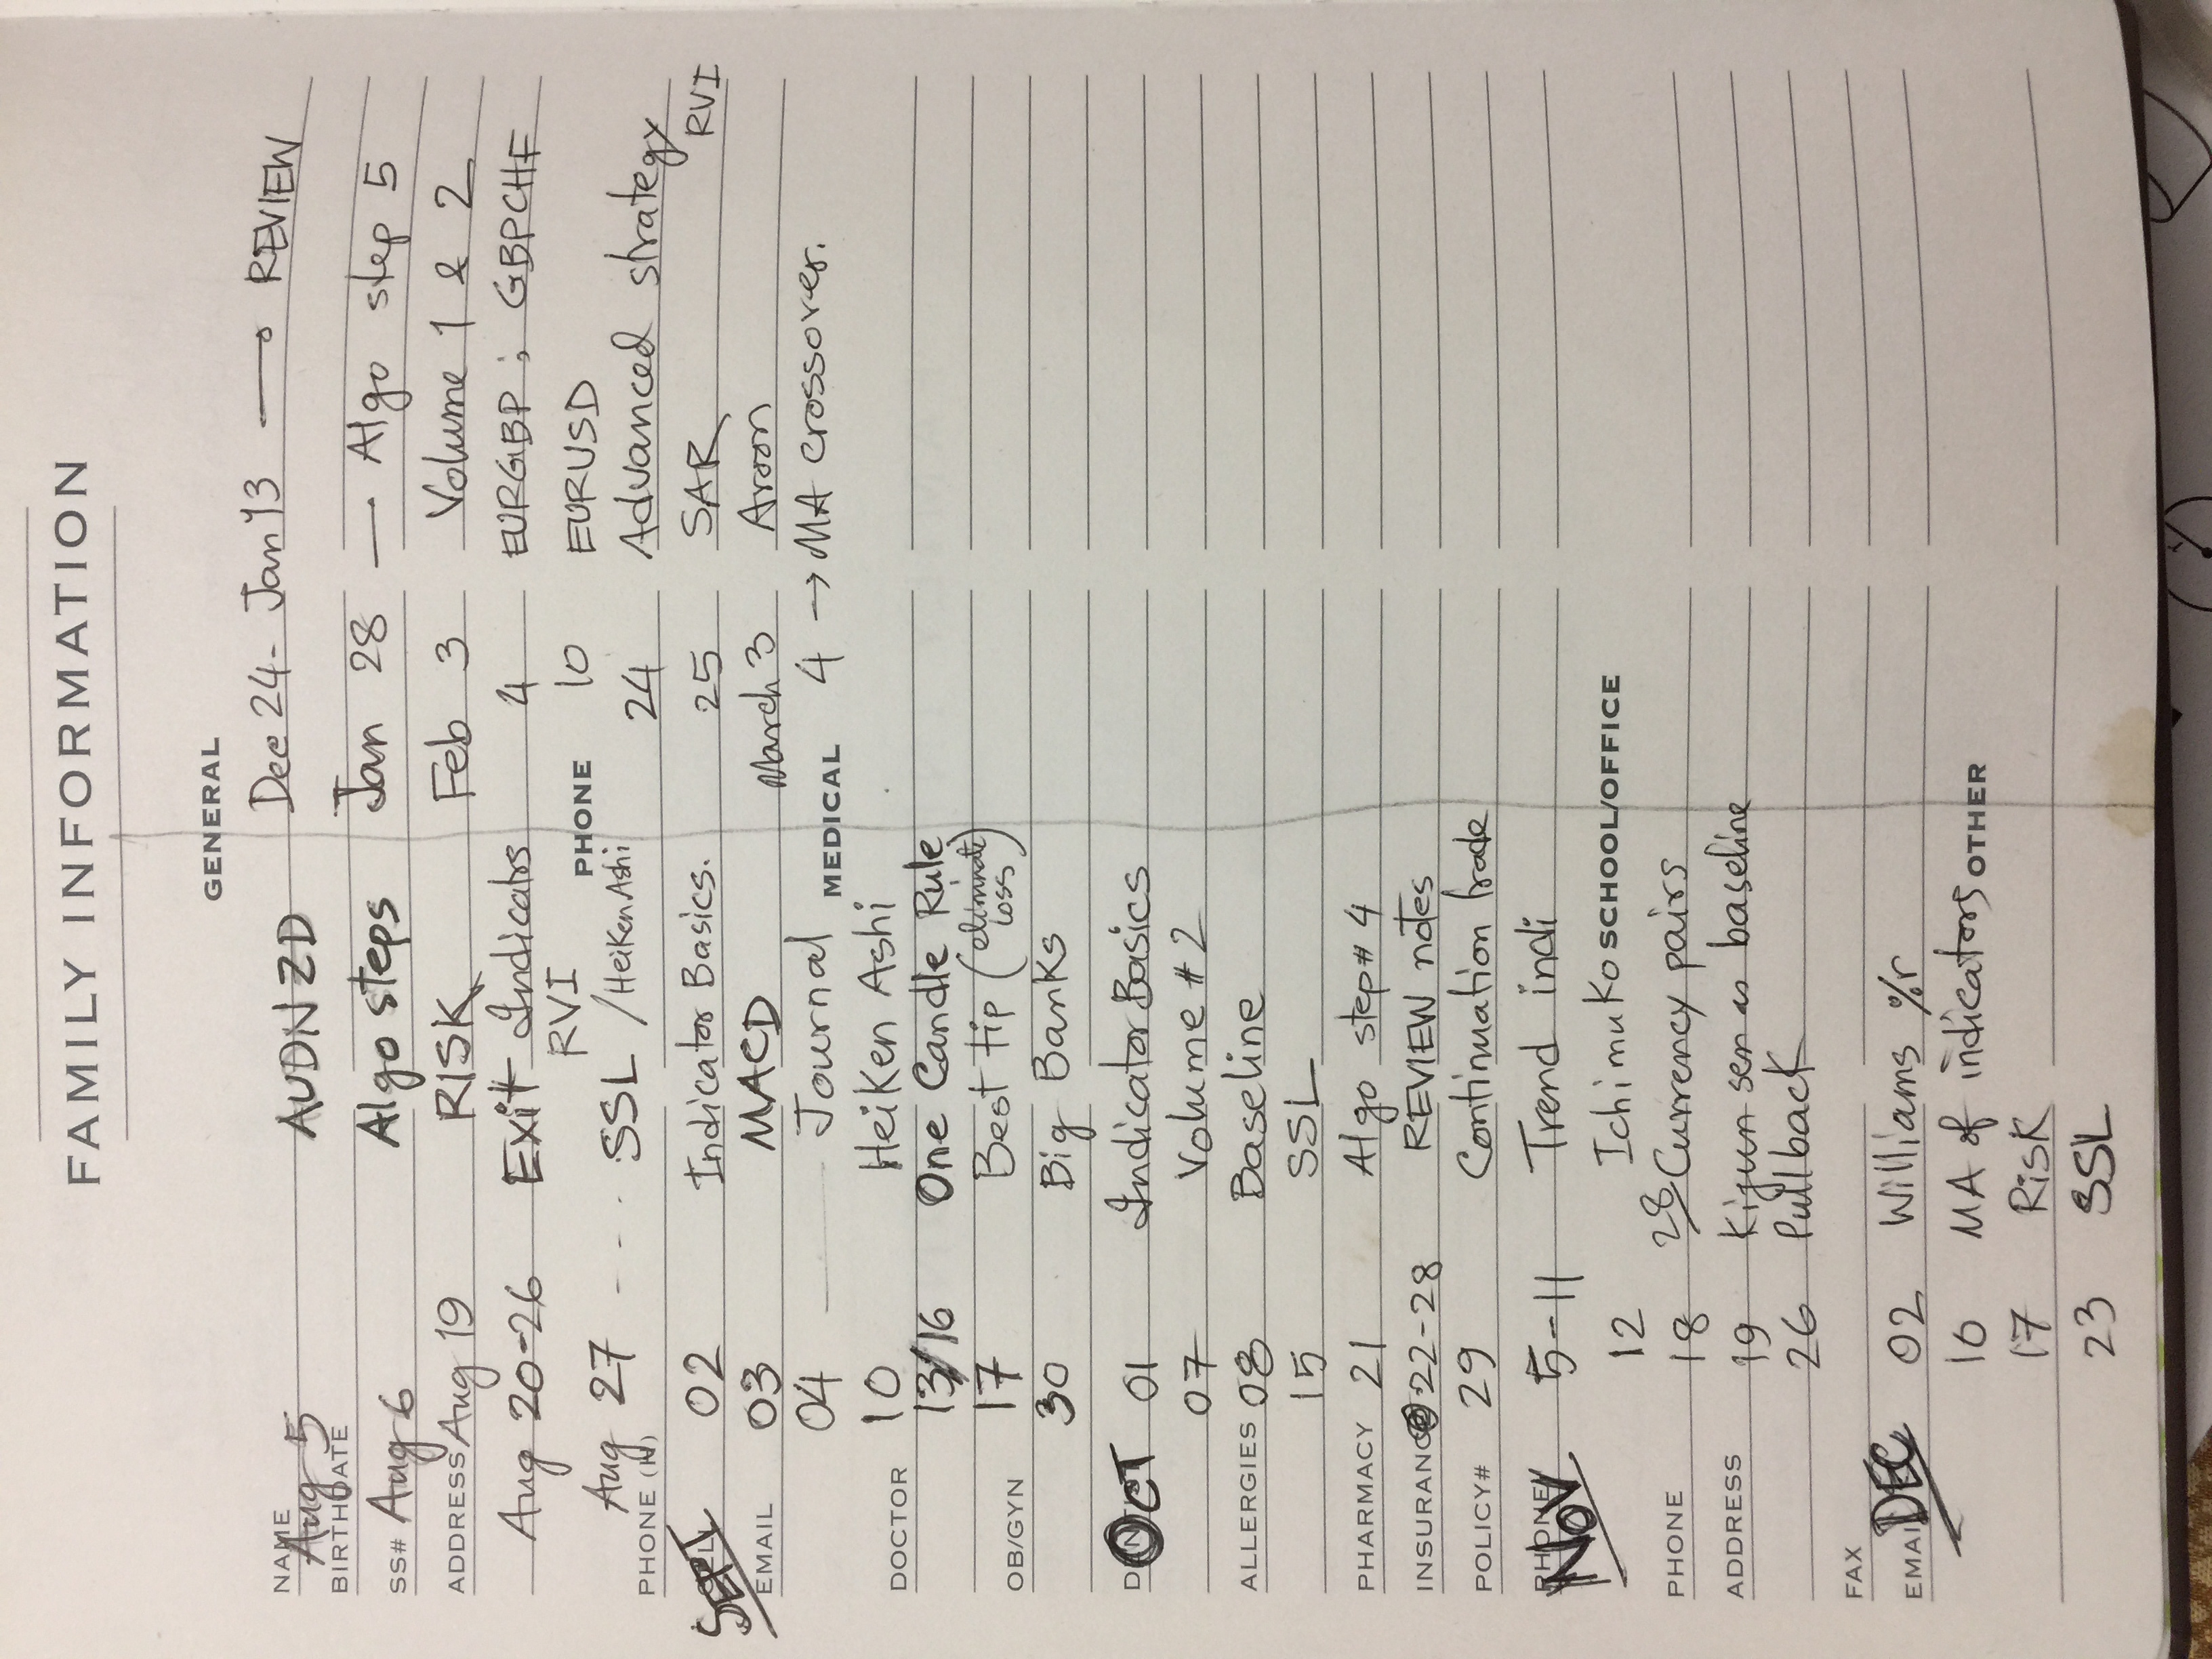 FAMILY INFORMATION
GENERAL
NAME
Aug 5 AUDNZD
BIRTHDATE
SS# Aug 6 Algo steps
ADDRESS Aug 19 RISK
Aug 20-26 Exit Indicatrs
RVI
Aug 27 ---- SSL / Heiken Ashi
PHONE (H)
SEPT 02 Indicator Basics.
EMAIL 03 MACD
04 — Journal
DOCTOR 10 Heiken Ashi
13/16 One Candle Rule
OB/GYN 17 Best tip (eliminate loss)
30 Big Banks
OCT 01 Indicator Basics
07 Volume #2
ALLERGIES 08 Baseline
15 SSL
PHARMACY 21 Algo step# 4
INSURANCE 22-28 REVIEW notes
POLICY# 29 Continuation trade
PHONE
NOV 5-11 Trend indi
12 Ichimuko
PHONE 18 28 Currency pairs
ADDRESS 19 Kijun sen as baseline
26 Pullback
FAX
EMAIL DEC 02 Williams %r
10 MA of indicators
17 Risk
23 SSL
Dec 24 - Jan 13 → REVIEW
Jan 28 — Algo step 5
Feb 3 Volume 1 & 2
4 EURGBP ; GBPCHF
PHONE 10 EURUSD
24 Advanced strategy
25 SAR RVI
March 3 Aroon
MEDICAL 4 → MA crossover.
SCHOOL/OFFICE
OTHER